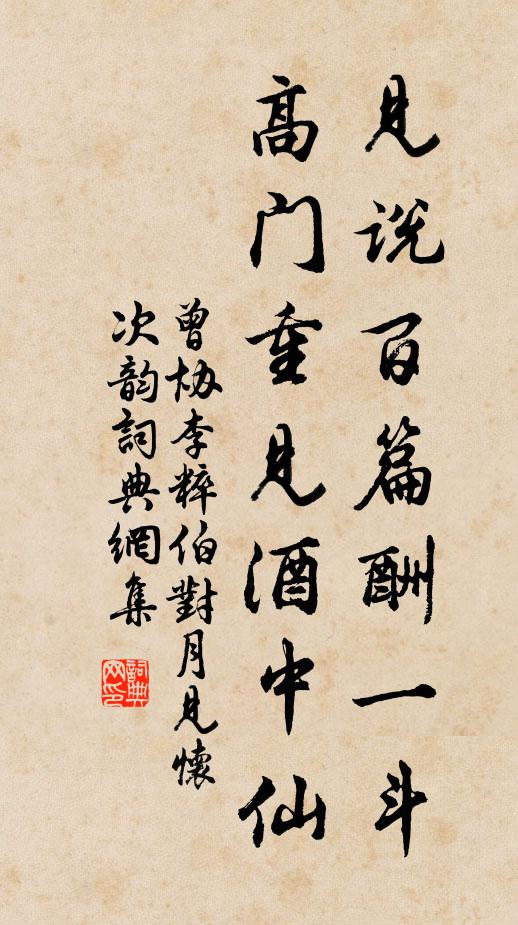 見説百篇酬一斗
高門重見酒中仙
曾协李粹伯對月見懷
次韵詞典網集
詞典
网印